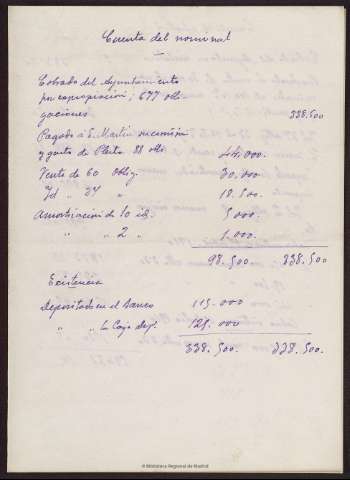 Cuenta del nominal
Cobrado del Ayuntamiento
por expropiación; 677 obli-
gaciones 338.500
Pagado a S. Martin
y gasto de Pleito 88 obls 44.000.
Venta de 60 oblig. 30.000.
Id " 37 " 18.500.
Amortización de 10 id. 5.000.
" " 2 " 1.000.
98.500. 338.500
Existencia
Depositado en el Banco 115.000
" " la Caja Dep. 125.000
338.500. 338.500.
© Biblioteca Regional de Madrid